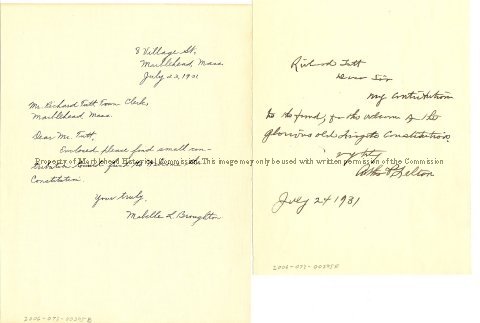 8 Village St.
Marblehead, Mass.
July 22, 1931
Mr. Richard Tutt Town Clerk,
Marblehead Mass.
Dear Mr. Tutt,
Enclosed please find small con-
Constitution.
Yours truly,
Mabelle L Broughton
2006-073-00295B
Richard Tutt
Dear Sir
My contribution
to the fund, for the return of the
glorious old frigate Constitution.
July 24 1931
Property of Marblehead Historical Commission. This image may only be used with written permission of the Commission